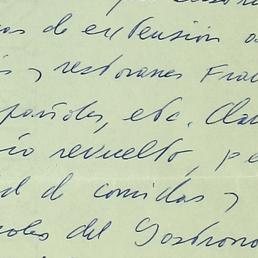 as de extensión
y restoranes Fra
pañoles, etc. Cla
ío revuelto, pe
d de comidas y
oles del Gastrono